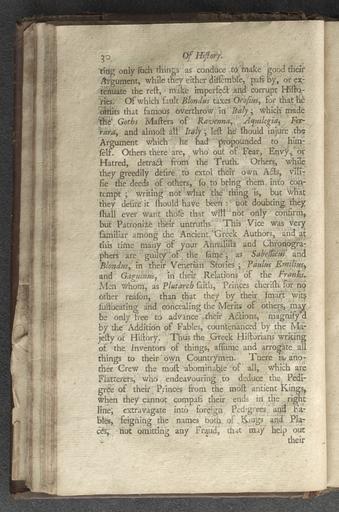 30 Of History.
ring only such things as conduce to make good their
Argument, while they either dissemble, pass by, or ex-
tenuate the rest, make imperfect and corrupt Histo-
ries. Of which fault Blondus taxes Orosius, for that he
omits that famous overthrow in Italy; which made
the Goths Masters of Ravenna, Aquilegia, Fer-
rara, and almost all Italy; lest he should injure the
Argument which he had propounded to him-
self. Others there are, who out of Fear, Envy, or
Hatred, detract from the Truth. Others, while
they greedily desire to extol their own Acts, vili-
fie the deeds of others, so to bring them into con-
tempt; writing not what the thing is, but what
they desire it should have been: not doubting they
shall ever want those that will not only confirm,
but Patronize their untruths. This Vice was very
familiar among the Ancient Greek Authors, and at
this time many of your Annalists and Chronogra-
phers are guilty of the same; as Sabellicus and
Blondus, in their Venetian Stories; Paulus Emilius,
and Gaguinus, in their Relations of the Franks.
Men whom, as Plutarch saith, Princes cherish for no
other reason, than that they by their smart wits
suffocating and concealing the Merits of others, may
be only free to advance their Actions, magnify'd
by the Addition of Fables, countenanced by the Ma-
jesty of History. Thus the Greek Historians writing
of the Inventors of things, assume and arrogate all
things to their own Countrymen. There is ano-
ther Crew the most abominable of all, which are
Flatterers, who endeavouring to deduce the Pedi-
gree of their Princes from the most antient Kings,
when they cannot compass their ends in the right
line, extravagate into foreign Pedigrees and Fa-
bles, feigning the names both of Kings and Pla-
ces, not omitting any Fraud, that may help out
their